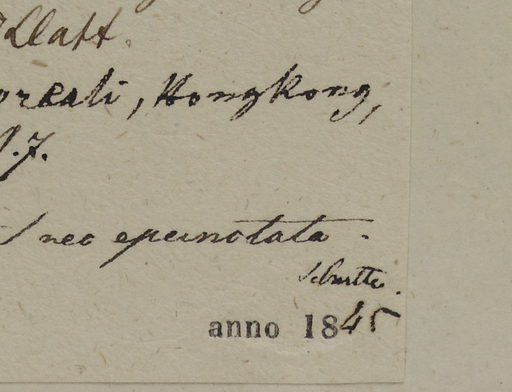 Klatt.
oreali, Hongkong,
nec epunctata.
Schultz.
anno 1845